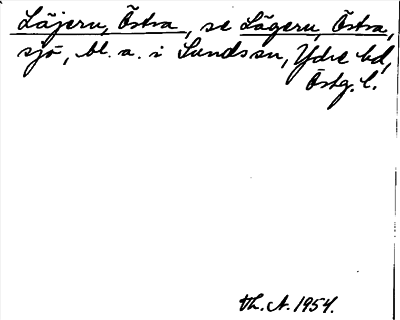 Läjern, Östra, se Lägern, Östra,
sjö, bl. a. i Sunds sn, Ydre hd,
Östg. l.
Th. A. 1954.